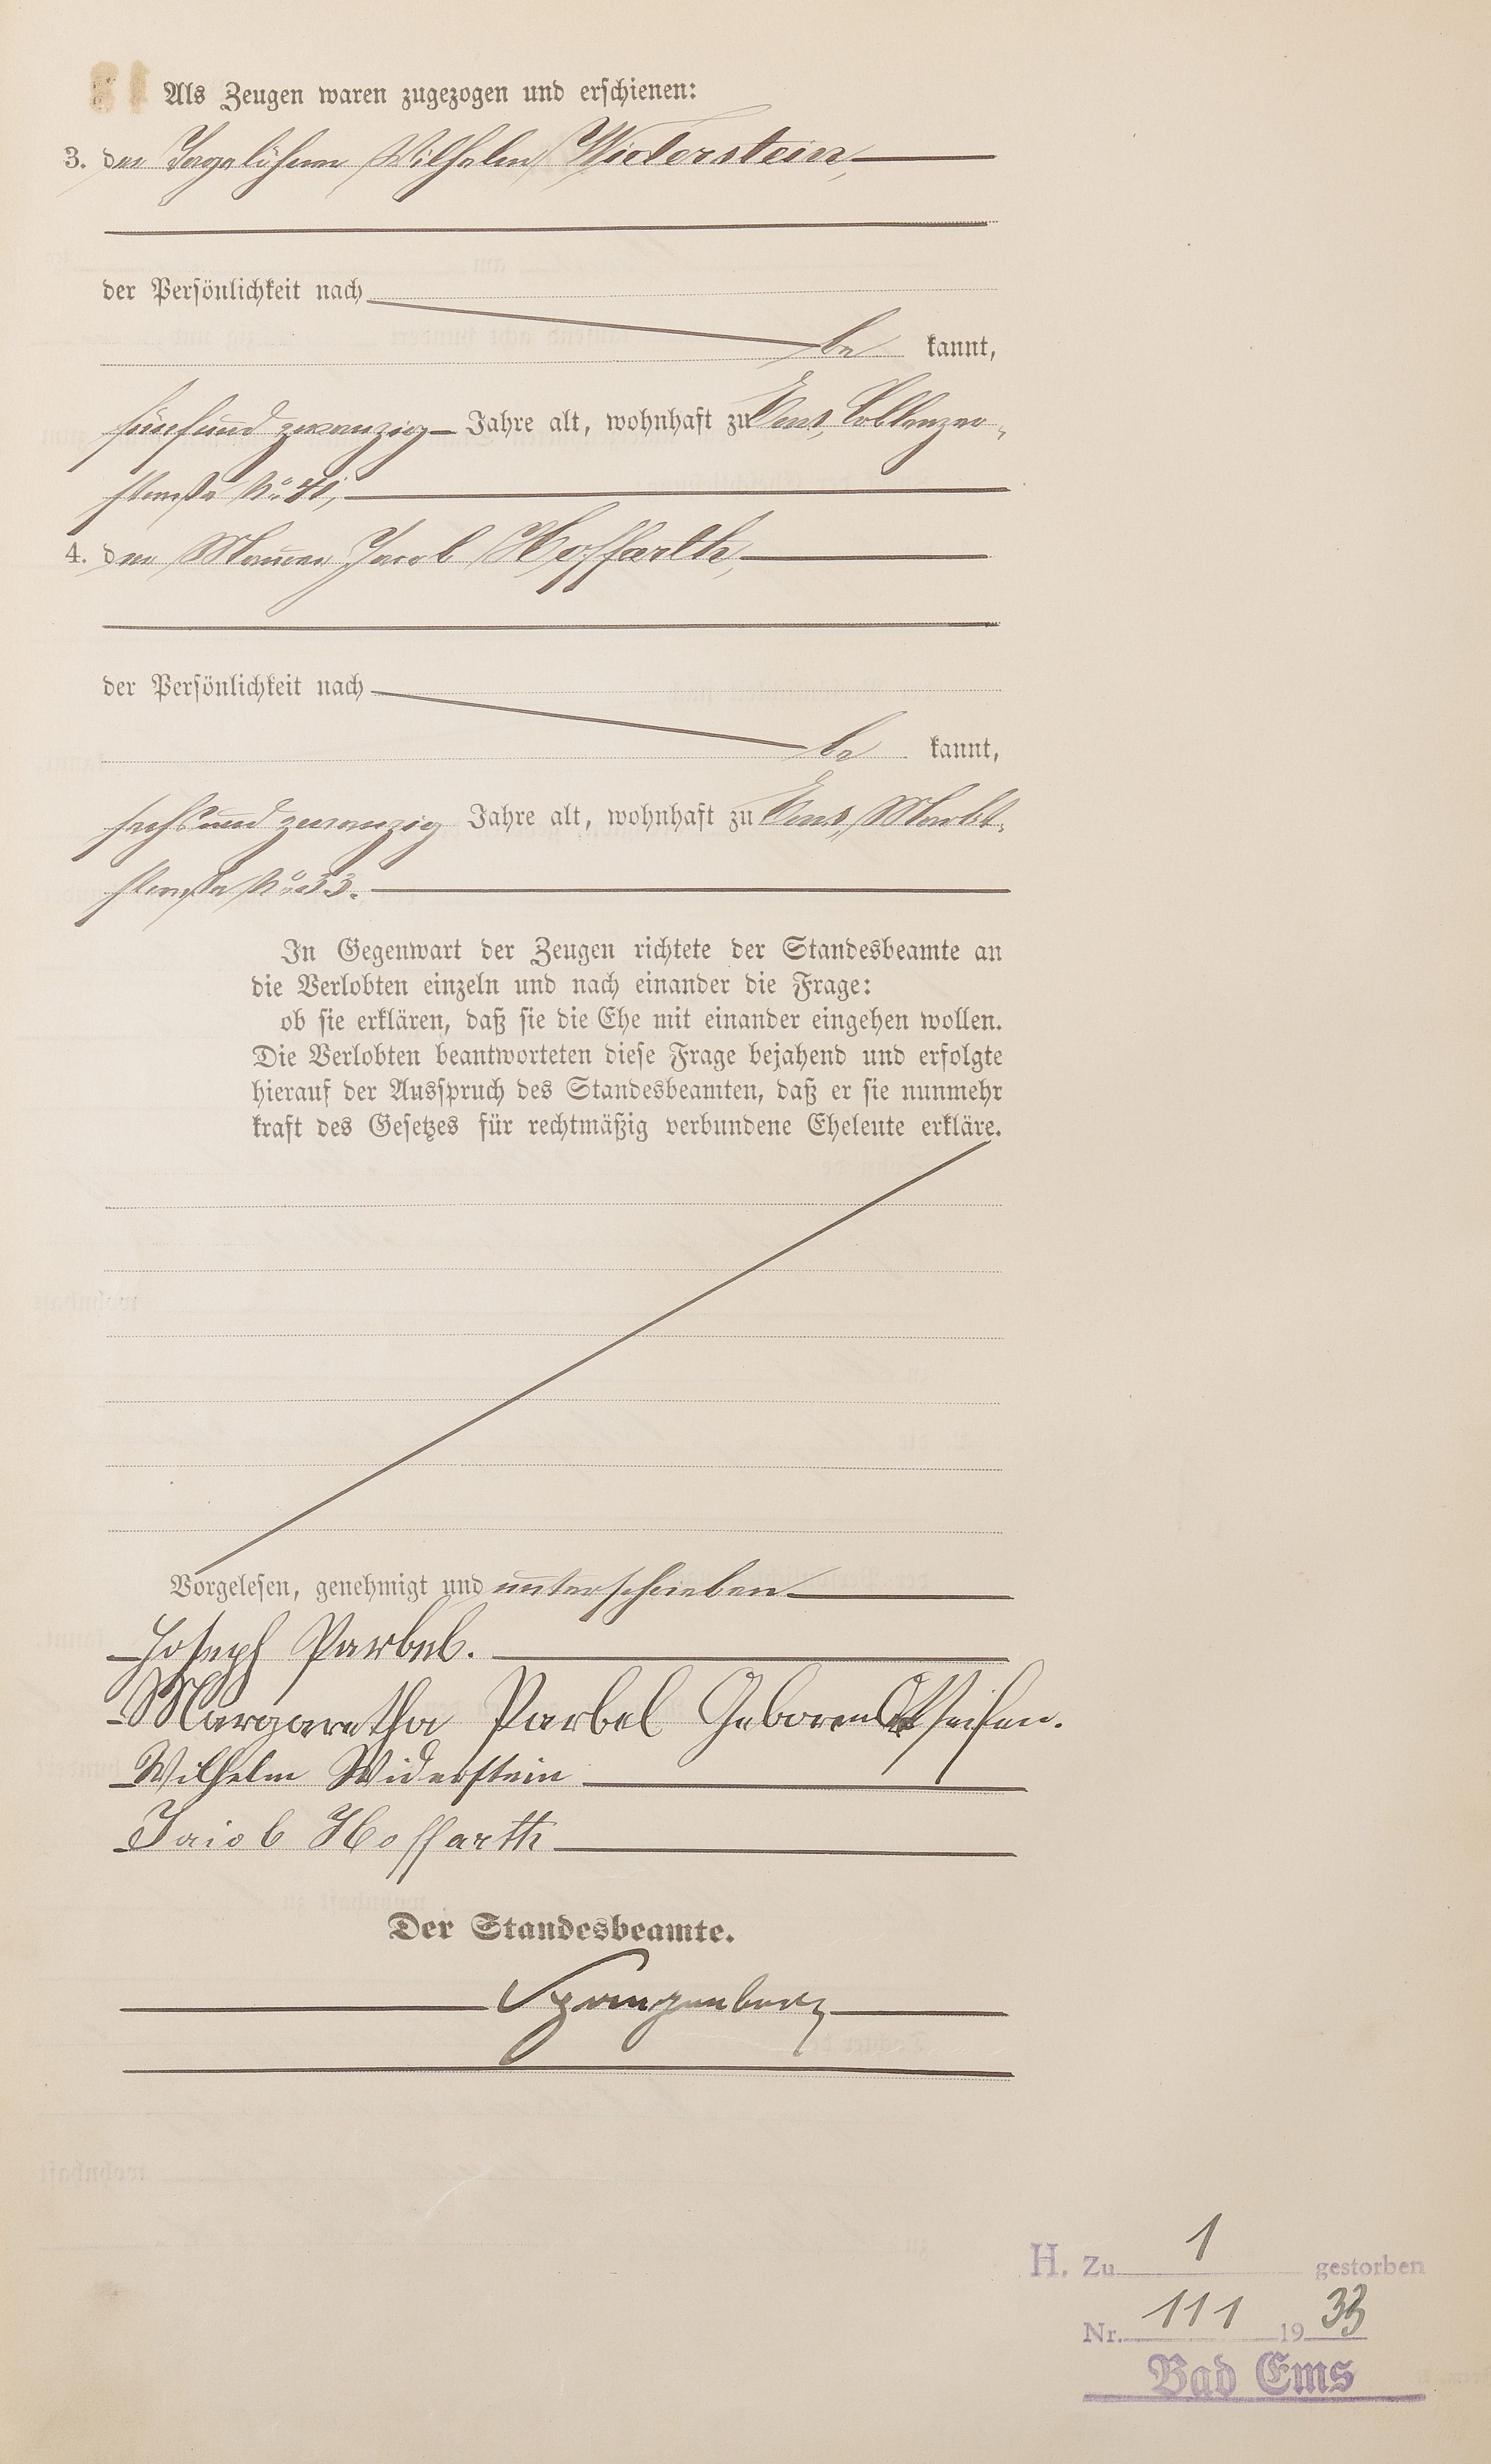 Als Zeugen waren zugezogen und erschienen:
3. der Tagelöhner Wilhelm Widerstein,
der Persönlichkeit nach
be kannt,
fünfundzwanzig Jahre alt, wohnhaft zu Ems, Coblenzer-
straße No. 41,
4. der Maurer Jacob Hoffarth,
der Persönlichkeit nach
be kannt,
sechsundzwanzig Jahre alt, wohnhaft zu Ems, Markt-
straße No. 33.
In Gegenwart der Zeugen richtete der Standesbeamte an
die Verlobten einzeln und nach einander die Frage:
ob sie erklären, daß sie die Ehe mit einander eingehen wollen.
Die Verlobten beantworteten diese Frage bejahend und erfolgte
hierauf der Ausspruch des Standesbeamten, daß er sie nunmehr
kraft des Gesetzes für rechtmäßig verbundene Eheleute erkläre.
Vorgelesen, genehmigt und unterschrieben
Joseph Parbel.
Margaretha Parbel Geboren
Wilhelm Widerstein
Jacob Hoffarth
Der Standesbeamte.
Spangenberg
H. Zu 1 gestorben
Nr. 111 19 33
Bad Ems